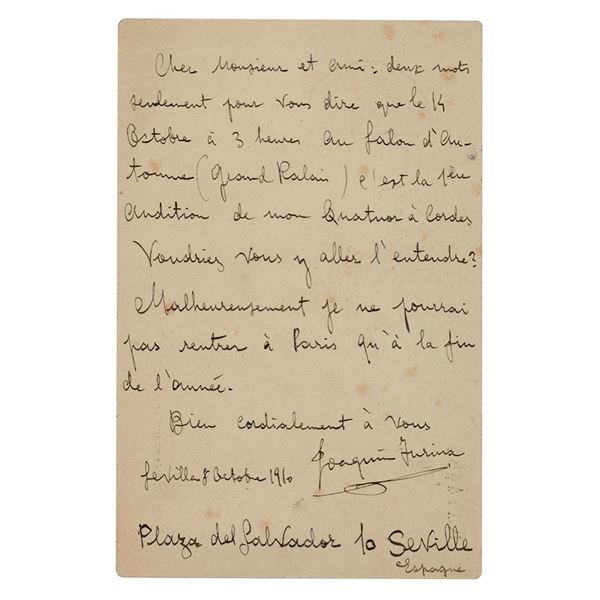 Cher Monsieur et ami: deux mots
seulement pour vous dire que le 14
Octobre à 3 heures au Salon d'Au-
tomne (Grand Palais) c'est la 1ère
audition de mon Quatuor à Cordes
Voudriez vous y aller l'entendre?
Malheureusement je ne pourrai
pas rentrer à Paris qu'à la fin
de l'année.
Bien cordialement à vous
Joaquin Turina
Sevilla 8 Octobre 1910
Plaza del Salvador 10 Seville
Espagne